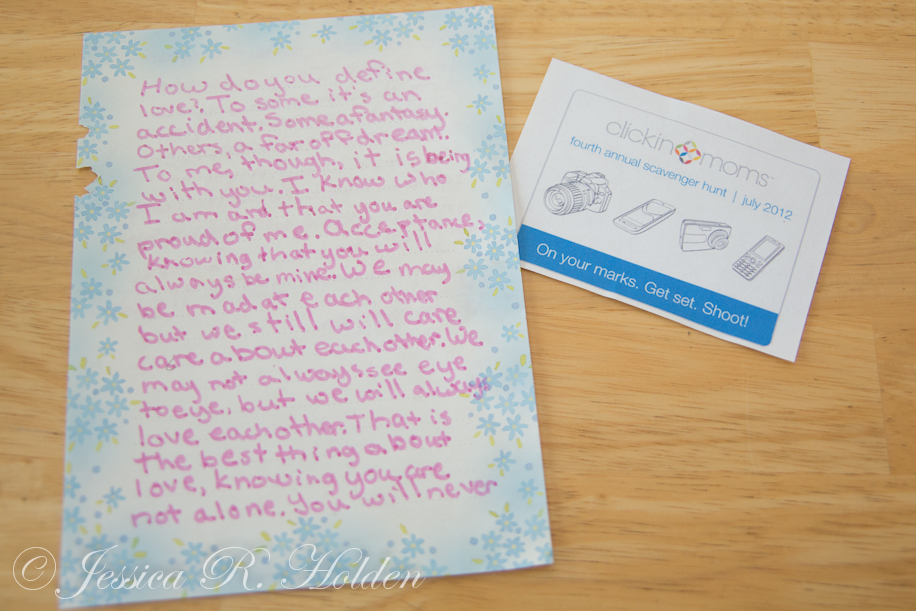 How do you define
love? To some it's an
accident. Some a fantasy.
Others, a far off dream.
To me, though, it is being
with you. I know who
I am and that you are
proud of me. Acceptance,
knowing that you will
always be mine. We may
be mad at each other
but we still will care
care about each other. We
may not always see eye
to eye, but we will always
love each other. That is
the best thing about
love, knowing you are
not alone. You will never
clickin moms
fourth annual scavenger hunt | july 2012
On your marks. Get set. Shoot!
© Jessica R. Holden